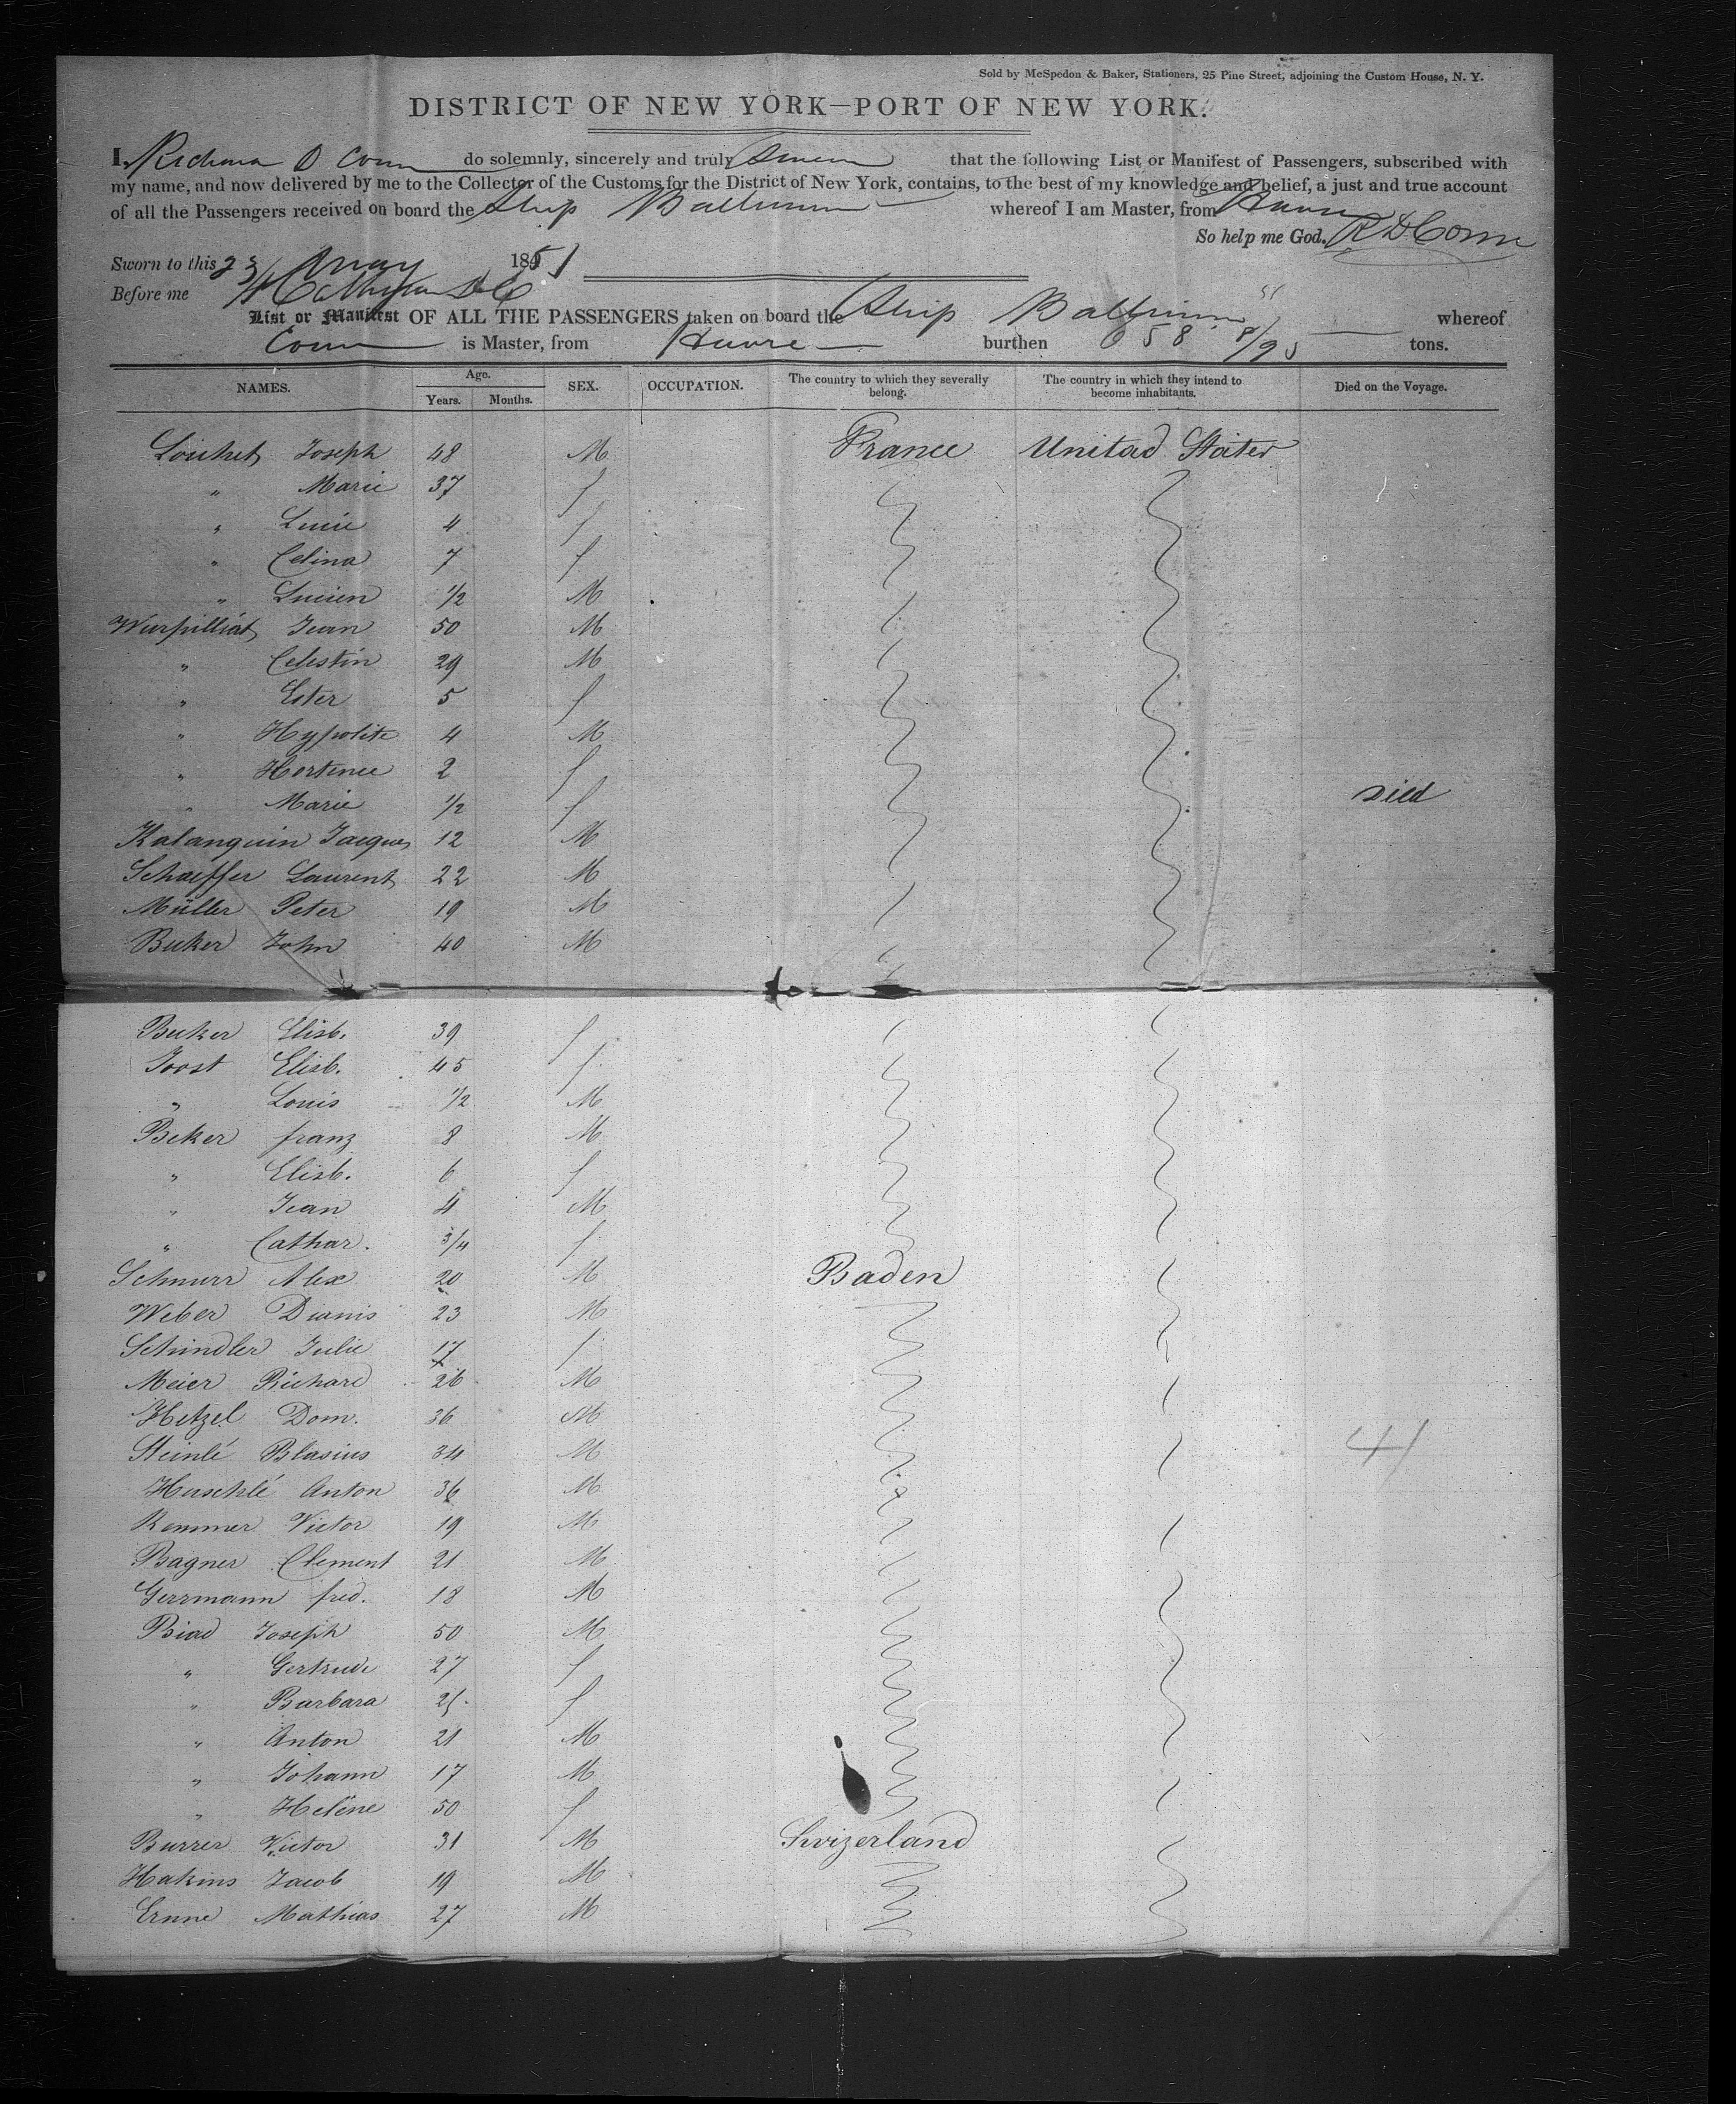 Sold by McSpedon & Baker, Stationers, 25 Pine Street, adjoining the Custom House, N. Y.
DISTRICT OF NEW YORK—PORT OF NEW YORK.
I, Richard D Conn do solemnly, sincerely and truly Swear that the following List or Manifest of Passengers, subscribed with
my name, and now delivered by me to the Collector of the Customs for the District of New York, contains, to the best of my knowledge and belief, a just and true account
of all the Passengers received on board the Ship Baltimore whereof I am Master, from Havre
So help me God. R D Conn
Sworn to this 23 May 1851
Before me
List or Manifest OF ALL THE PASSENGERS taken on board the Ship Baltimore whereof
Conn is Master, from Havre burthen 658 8/95 tons.
NAMES. Age. Years. Months. SEX. OCCUPATION. The country to which they severally belong. The country in which they intend to become inhabitants. Died on the Voyage.
Louhet Joseph 48 M France United States
" Marie 37 f
" Lucie 4 f
" Celina 7 f
" Lucien 1/2 M
Wurpilliat Jean 50 M
" Celestin 29 M
" Ester 5 f
" Hypolite 4 M
" Hortence 2 f
" Marie 1/2 f Died
Kalanquin Jacques 12 M
Schaeffer Laurent 22 M
Müller Peter 19 M
Beker John 40 M
Beker Elisb. 39 f
Joost Elisb. 45 f
" Louis 1/2 M
Beker franz 8 M
" Elisb. 6 f
" Jean 4 M
" Cathar. 3/4 f
Schnurr Alex 20 M Baden
Weber Dionis 23 M
Schindler Julie 17 f
Meier Richard 26 M
Hetzel Dom. 36 M
Steinlé Blasius 34 M 41
Huschlé Anton 36 M
Remmer Victor 19 M
Bagner Clement 21 M
Gerrmann fred. 18 M
Biad Joseph 50 M
" Gertrude 27 f
" Barbara 25 f
" Anton 21 M
" Johann 17 M
" Helène 50 f
Burrer Victor 31 M Swizerland
Hakins Jacob 19 M
Ernne Mathias 27 M